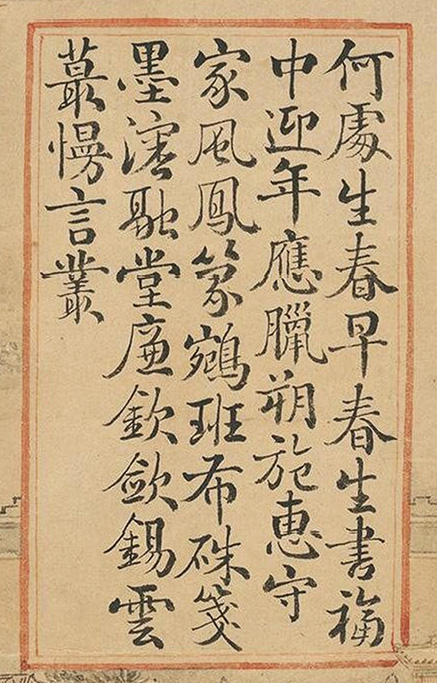 何處生春早春生書福
中迎年應臘朔施惠守
家風鳳篆鵷班布硃箋
墨瀋融堂廉欽斂錫雲
蕞慢言叢